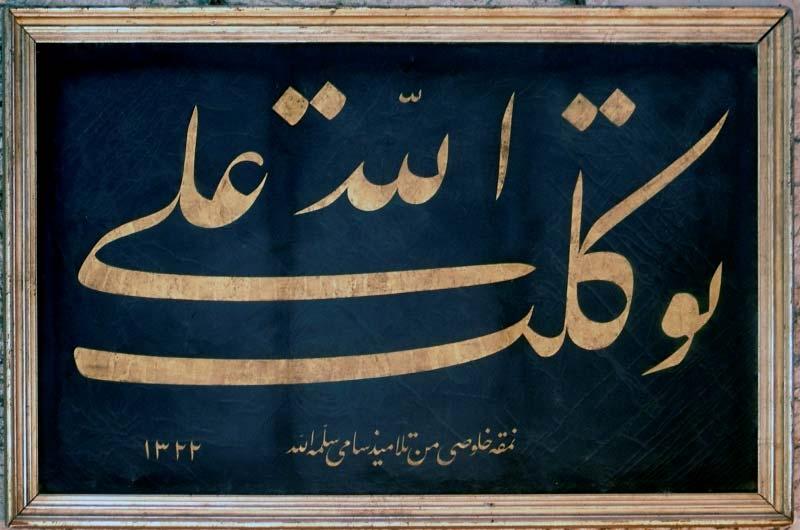 توكلت على الله
نمقه خلوصی من تلامیذ سامی سلّمه الله
١٣٢٢